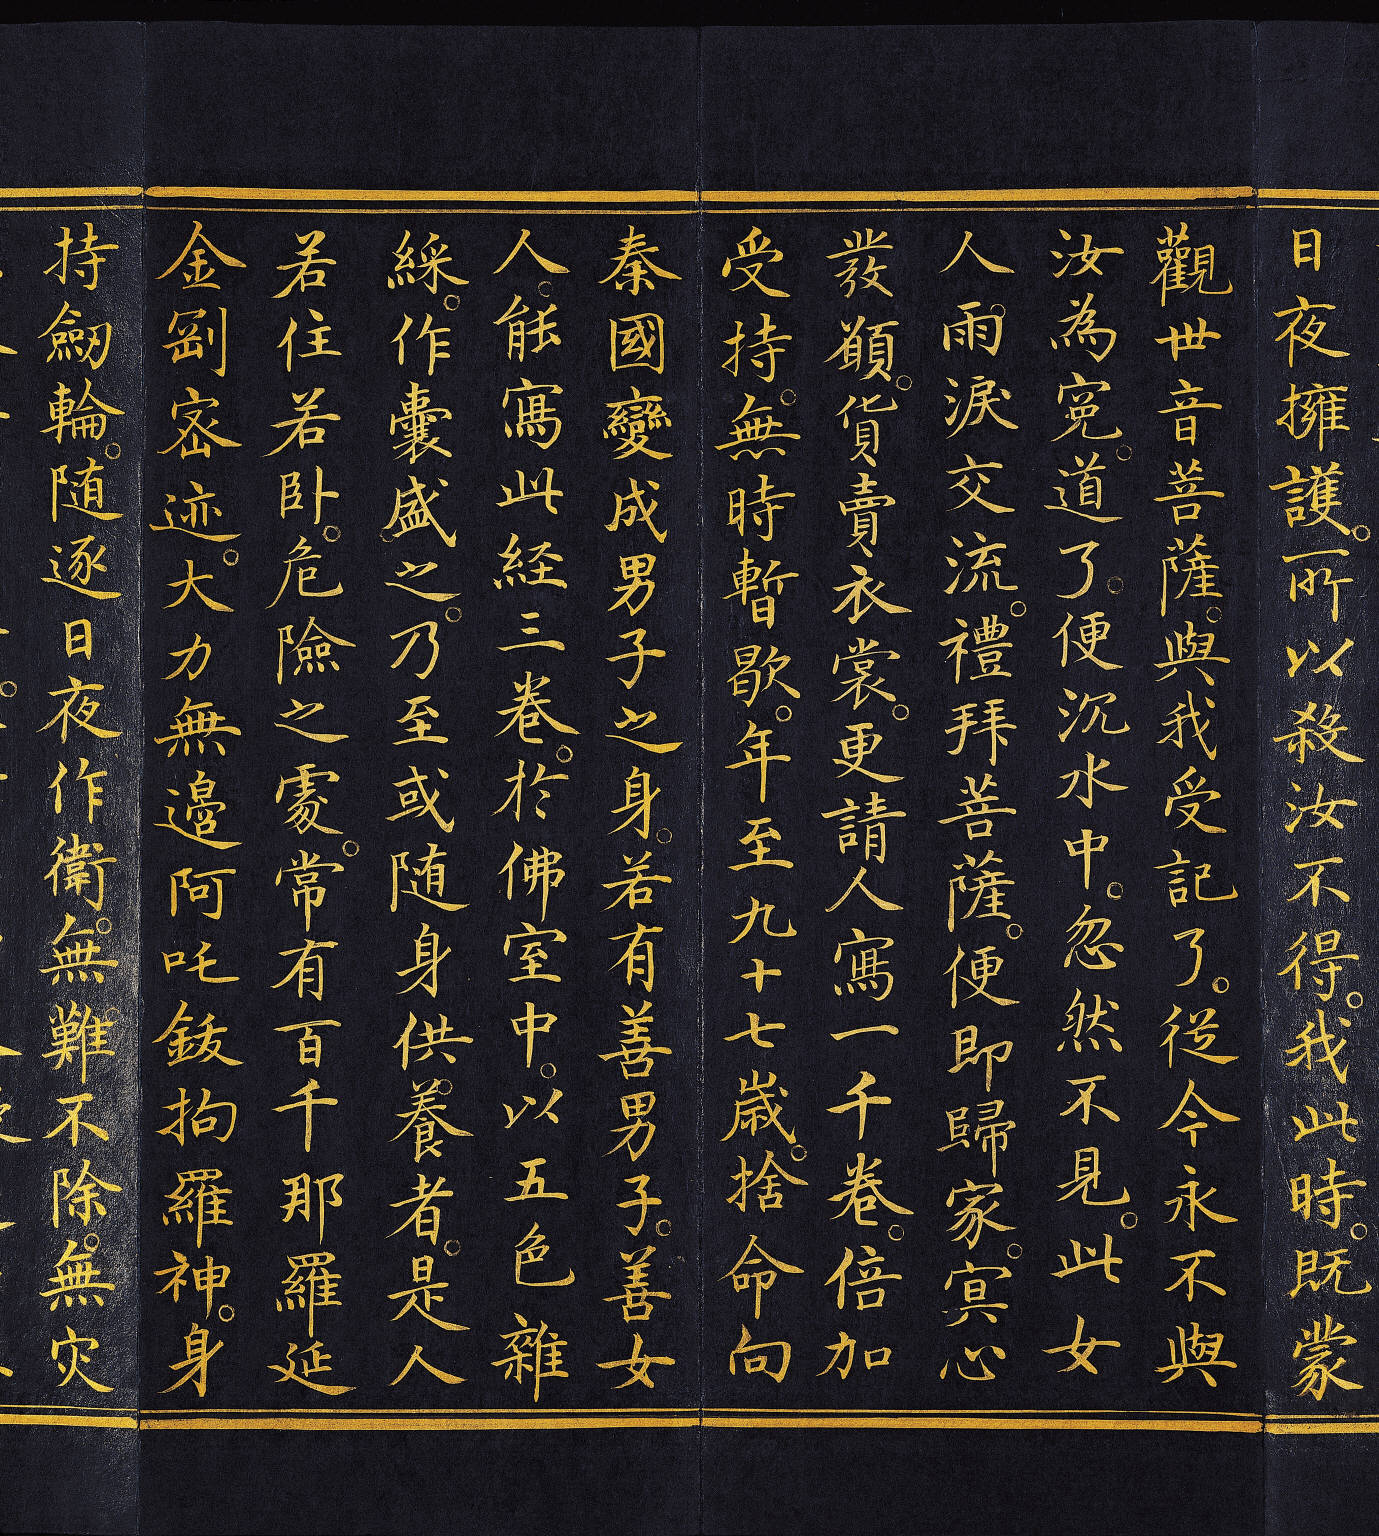 日夜擁護。所以殺汝不得。我此時。既蒙
觀世音菩薩。與我受記了。從今永不與
汝為寃。道了。便沉水中。忽然不見。此女
人。雨淚交流。禮拜菩薩。便即歸家。㝠心
發願。貨賣衣裳。更請人寫一千卷。倍加
受持。無時暫歇。年至九十七歲。捨命向
秦國變成男子之身。若有善男子。善女
人。能寫此経三卷。於佛室中。以五色雜
綵。作囊盛之。乃至或随身供養者。是人
若住若卧。危險之處。常有百千那羅延
金剛宻迹。大力無邊阿吒鈸拘羅神。身
持劒輪。随逐日夜作衛。無難不除。無灾